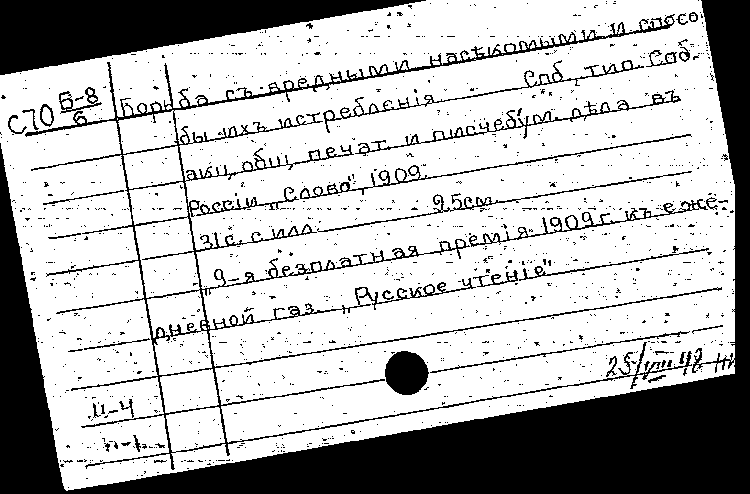 С70 Б-8/6 Борьба съ вредными насѣкомыми и спосо
бы ихъ истребленія Спб, тип. Спб.
акц. общ. печат. и писчебум. дѣла въ
Россіи „Слово", 1909.
31 с. с илл. 25см.
„9-я безплатная премія 1909 г. къ еже-
дневной газ. „Русское чтеніе"
25/VIII 48